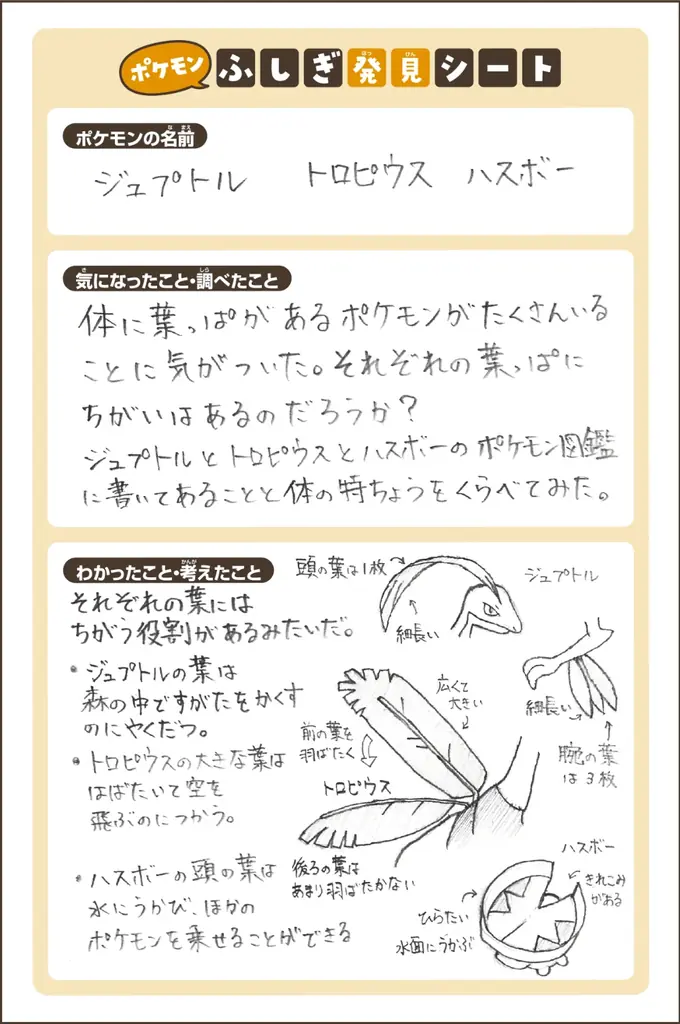 ポケモン ふしぎ発見シート
ポケモンの名前
ジュプトル トロピウス ハスボー
気になったこと・調べたこと
体に葉っぱがあるポケモンがたくさんいる
ことに気がついた。それぞれの葉っぱに
ちがいはあるのだろうか？
ジュプトルとトロピウスとハスボーのポケモン図鑑
に書いてあることと体の特ちょうをくらべてみた。
わかったこと・考えたこと
それぞれの葉には
ちがう役割があるみたいだ。
・ジュプトルの葉は
森の中ですがたをかくす
のにやくだつ。
・トロピウスの大きな葉は
はばたいて空を
飛ぶのにつかう。
・ハスボーの頭の葉は
水にうかび、ほかの
ポケモンを乗せることができる
頭の葉は1枚
細長い
ジュプトル
細長い
腕の葉
は3枚
広くて
大きい
前の葉を
羽ばたく
トロピウス
後ろの葉は
あまり羽ばたかない
ハスボー
きれこみ
がある
ひらたい
水面にうかぶ